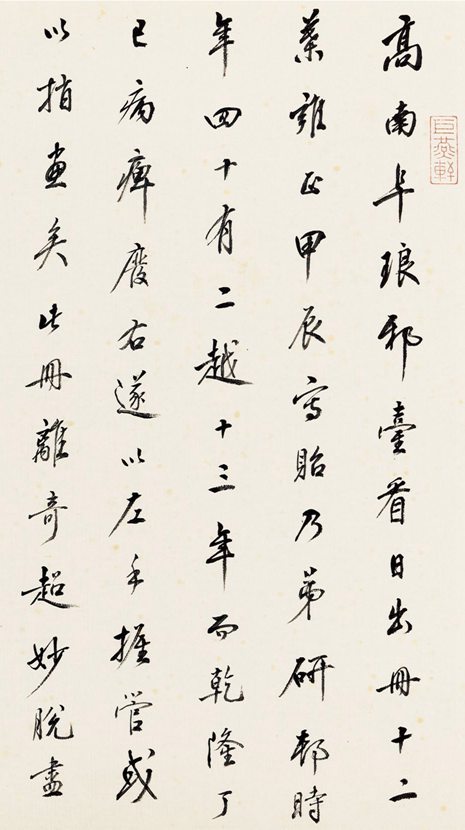 高南阜琅邪臺看日出冊十二
葉雍正甲辰寫貽乃弟研邨時
年四十有二越十三年而乾隆丁
巳病痺廢右遂以左手握管或
以指畫矣此冊離奇超妙脫盡
巨燕軒